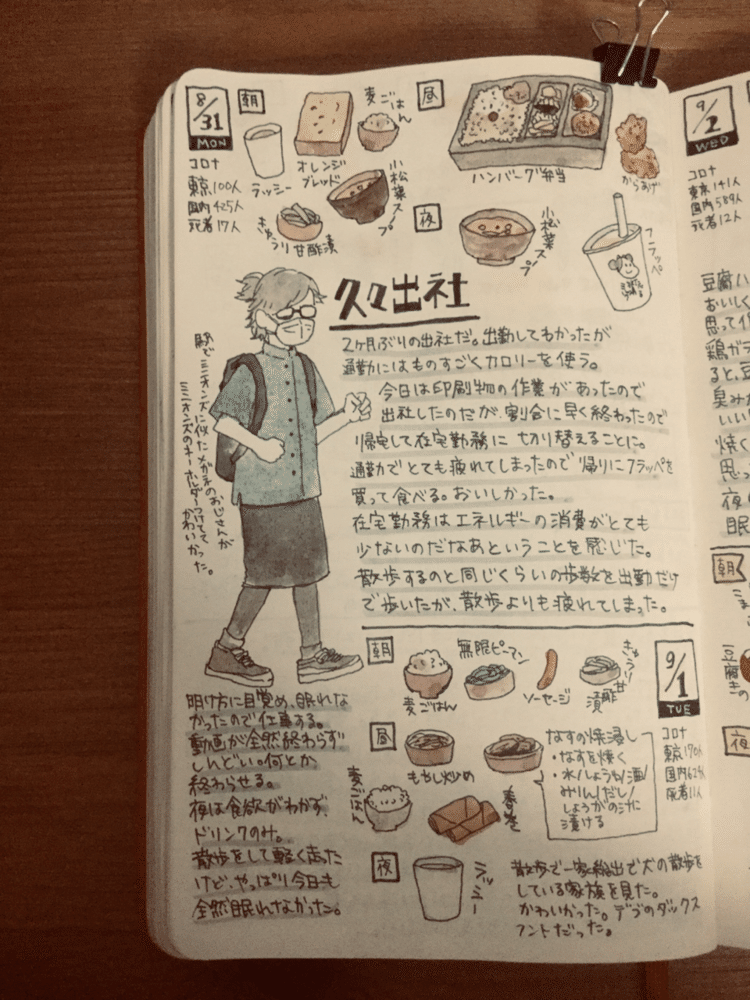 8/31
MON
コロナ
東京100人
国内425人
死者17人
朝
ラッシー
オレンジ
ブレッド
麦ごはん
小松菜スープ
きゅうり甘酢漬
昼
ハンバーグ弁当
からあげ
夜
小松菜スープ
フラッペ
久々出社
2ヶ月ぶりの出社だ。出勤してもわかったが
通勤にはものすごくカロリーを使う。
今日は印刷物の作業があったので
出社したのだが、割合に早く終わったので
帰宅して在宅勤務に切り替えることに。
通勤でとても疲れてしまったので帰りにフラッペを
買って食べる。おいしかった。
在宅勤務はエネルギーの消費がとても
少ないのだなあということを感じた。
散歩するのと同じくらいの歩数を出勤だけ
で歩いたが、散歩よりも疲れてしまった。
駅でミニオンズに似たメガネのおじさんが
ミニオンズのキーホルダーつけてて
かわいかった。
9/1
TUE
コロナ
東京170人
国内62人
死者11人
朝
麦ごはん
無限ピーマン
ソーセージ
きゅうり甘
酢漬
昼
麦ごはん
もやし炒め
春巻
なすの焼浸し
・なすを焼く
・水/しょうゆ/酒/
みりん/だし/
しょうがの汁に
漬ける
夜
ラッシー
明け方に目覚め、眠れな
かったので仕事する。
動画が全然終わらず
しんどい。何とか
終わらせる。
夜は食欲がわかず、
ドリンクのみ。
散歩をして軽く走った
けど、やっぱり今日も
全然眠れなかった。
散歩で一家総出で犬の散歩を
している家族を見た。
かわいかった。デブのダックス
フントだった。
9/2
WED
コロナ
東京141人
国内589人
死者12人
豆腐ハ
おいしく
思って作
鶏ガラ
ると、豆
臭みか
いい
焼く
思っ
夜
眠
朝
豆腐
きの
夜